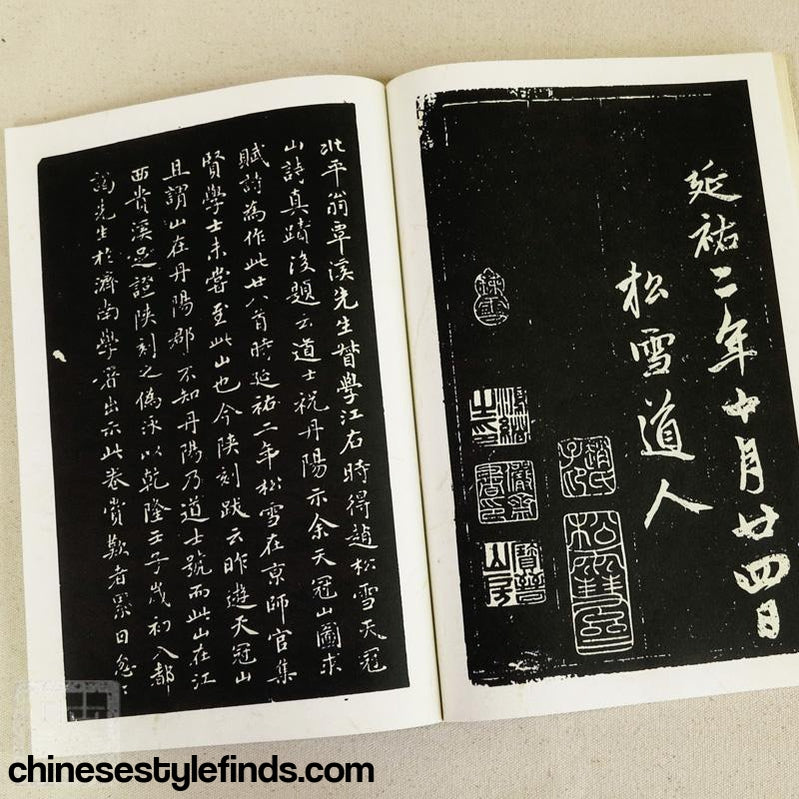 延祐二年十月廿四日
松雪道人
趙氏子印
松雪齋
寶晉山房
北平翁覃溪先生督學江右時得趙松雪天冠
山詩真蹟後題云道士祝丹陽示余天冠山圖求
賦詩為作此廿八首時延祐二年松雪在京師官集
賢學士未嘗至此山也今陝刻跋云昨遊天冠山
且謂山在丹陽郡不知丹陽乃道士號而此山在江
西貴溪足證陝刻之偽泳以乾隆壬子歲初入都
謁先生於濟南學署出示此卷賞歎者累日忽〻
chinesestylefinds.com